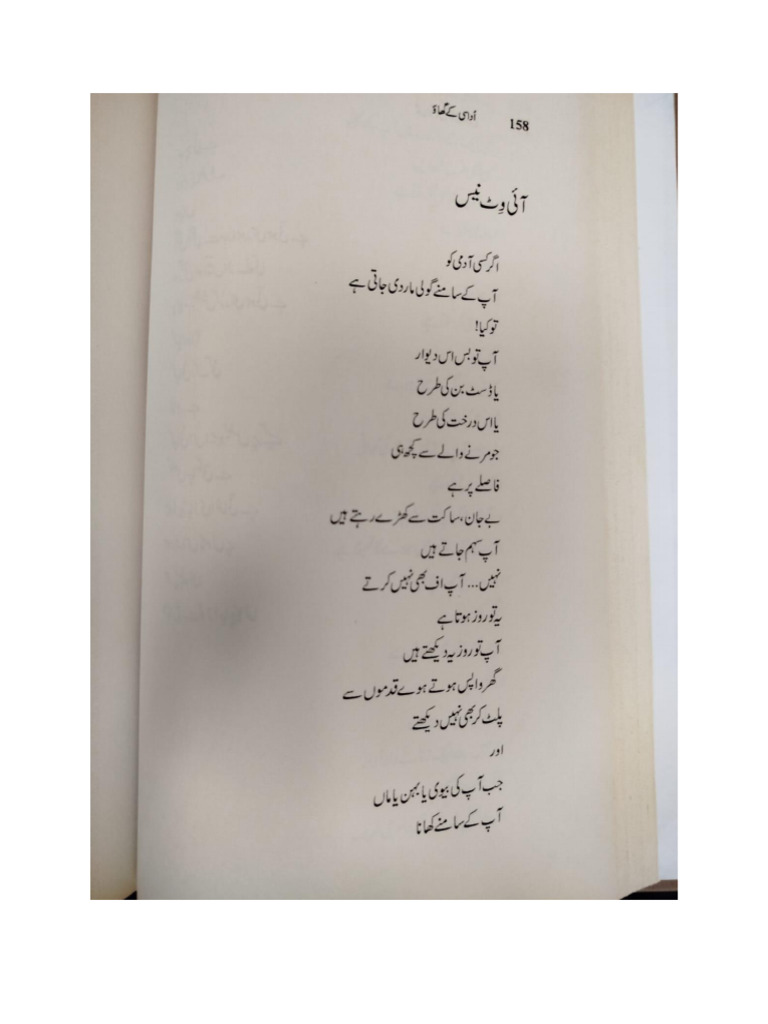 158 اُداسی کے گھاؤ
آئی وِٹ نیس
اگر کسی آدمی کو
آپ کے سامنے گولی مار دی جاتی ہے
تو کیا!
آپ تو بس اس دیوار
یا ڈسٹ بن کی طرح
یا اس درخت کی طرح
جو مرنے والے سے کچھ ہی
فاصلے پر ہے
بے جان، ساکت سے کھڑے رہتے ہیں
آپ سہم جاتے ہیں
نہیں... آپ اف بھی نہیں کرتے
یہ تو روز ہوتا ہے
آپ تو روز یہ دیکھتے ہیں
گھر واپس ہوتے ہوے قدموں سے
پلٹ کر بھی نہیں دیکھتے
اور
جب آپ کی بیوی یا بہن یا ماں
آپ کے سامنے کھانا